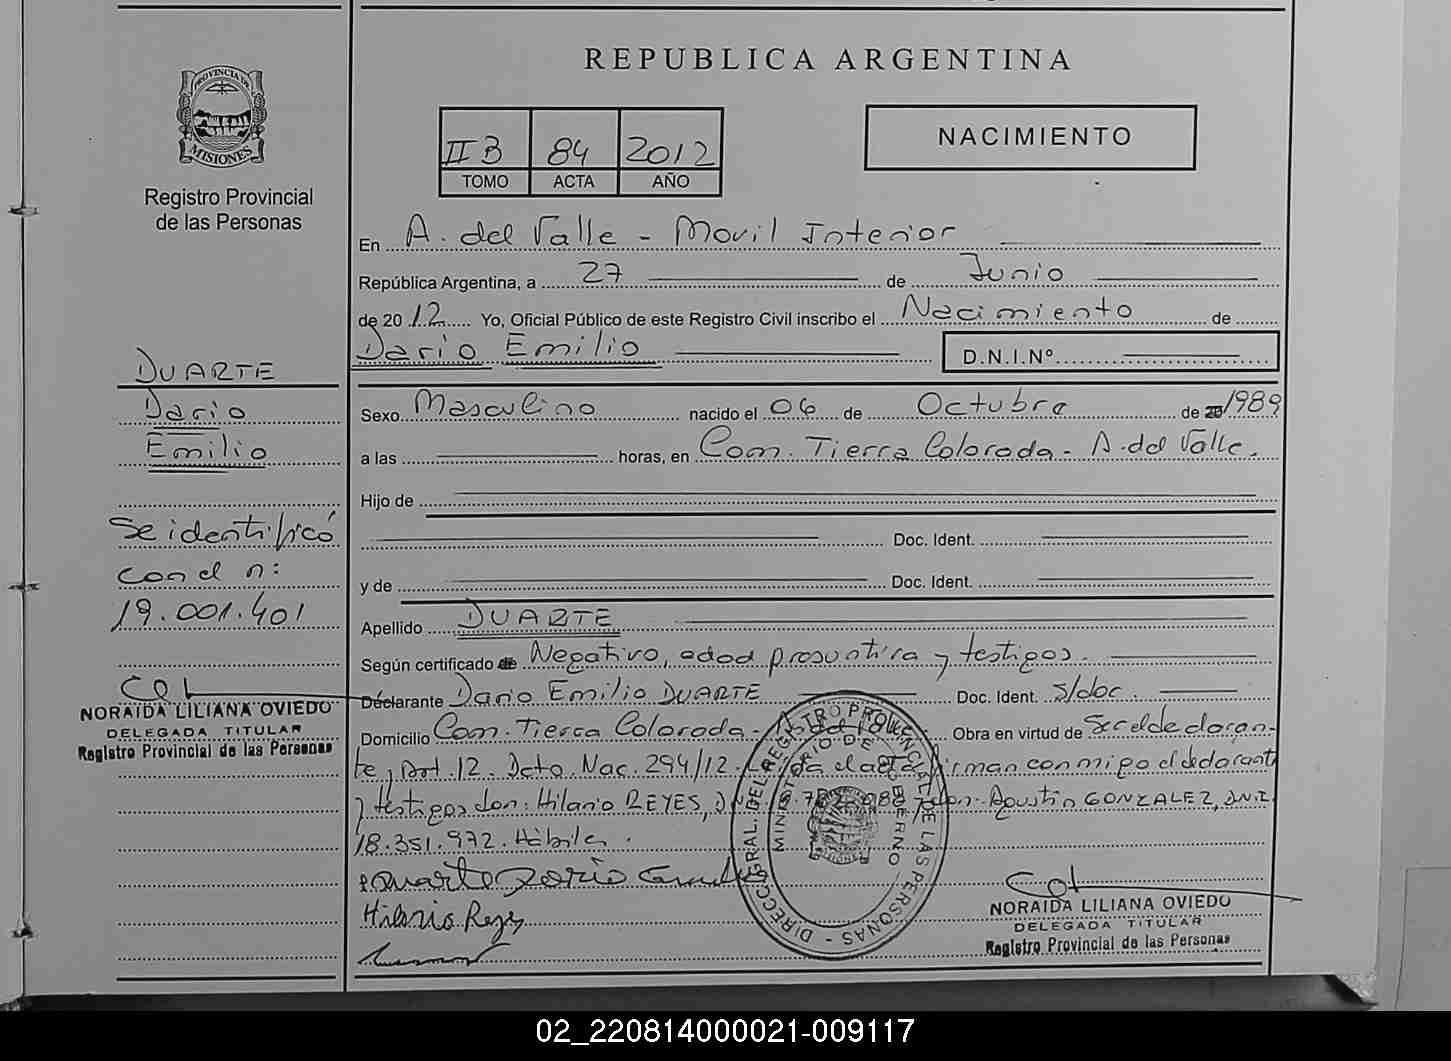 REPUBLICA ARGENTINA
PROVINCIA DE
MISIONES
Registro Provincial
de las Personas
II B 84 2012
TOMO ACTA AÑO
NACIMIENTO
En A. del Valle - Movil Interior
República Argentina, a 27 de Junio
de 2012 Yo, Oficial Público de este Registro Civil inscribo el Nacimiento de
Dario Emilio D.N.I.Nº
DUARTE
Dario
Emilio
Se identificó
con el n:
19.001.401
NORAIDA LILIANA OVIEDO
DELEGADA TITULAR
Registro Provincial de las Personas
Sexo Masculino nacido el 06 de Octubre de 1989
a las horas, en Com. Tierra Colorada - A. del Valle.
Hijo de
Doc. Ident.
y de Doc. Ident.
Apellido DUARTE
Según certificado de Negativo, edad presuntiva y testigos.
Declarante Dario Emilio DUARTE Doc. Ident. s/doc.
Domicilio Com. Tierra Colorada - A. del Valle Obra en virtud de Ser el declaran-
te, Art. 12. Dcto. Nac. 294/12. Leida el acta firman conmigo el declarante
y testigos don: Hilario REYES, don: Agustin GONZALEZ, DNI.
18.351.972. Hábiles.
Duarte Dario
Hilario Reyes
DIRECC. GRAL. DEL REGISTRO PROVINCIAL DE LAS PERSONAS
MINISTERIO DE GOBIERNO
NORAIDA LILIANA OVIEDO
DELEGADA TITULAR
Registro Provincial de las Personas
02_220814000021-009117